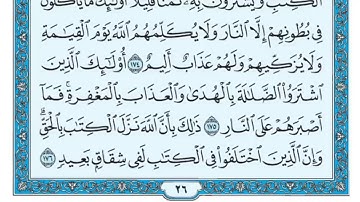 ٱلْكِتَٰبِ وَيَشْتَرُونَ بِهِۦ ثَمَنًا قَلِيلًا أُو۟لَٰٓئِكَ مَا يَأْكُلُونَ
فِى بُطُونِهِمْ إِلَّا ٱلنَّارَ وَلَا يُكَلِّمُهُمُ ٱللَّهُ يَوْمَ ٱلْقِيَٰمَةِ
وَلَا يُزَكِّيهِمْ وَلَهُمْ عَذَابٌ أَلِيمٌ ١٧٤ أُو۟لَٰٓئِكَ ٱلَّذِينَ
ٱشْتَرَوُا۟ ٱلضَّلَٰلَةَ بِٱلْهُدَىٰ وَٱلْعَذَابَ بِٱلْمَغْفِرَةِ ۚ فَمَآ
أَصْبَرَهُمْ عَلَى ٱلنَّارِ ١٧٥ ذَٰلِكَ بِأَنَّ ٱللَّهَ نَزَّلَ ٱلْكِتَٰبَ بِٱلْحَقِّ ۗ
وَإِنَّ ٱلَّذِينَ ٱخْتَلَفُوا۟ فِى ٱلْكِتَٰبِ لَفِى شِقَاقٍۭ بَعِيدٍ ١٧٦
٢٦